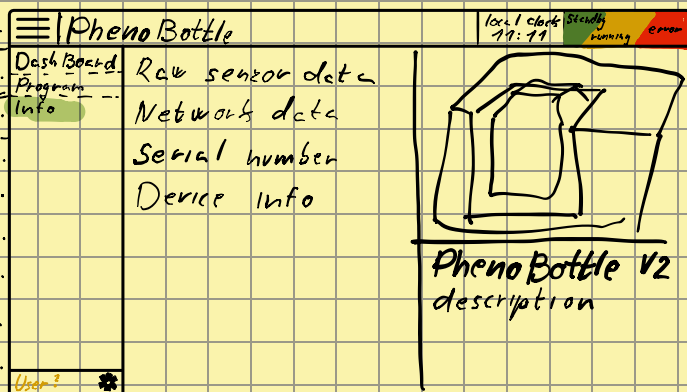 PhenoBottle
local clock
11:11
Standby
running
error
DashBoard
Program
Info
Raw senzor data
Network data
Serial number
Device Info
PhenoBottle V2
description
User?